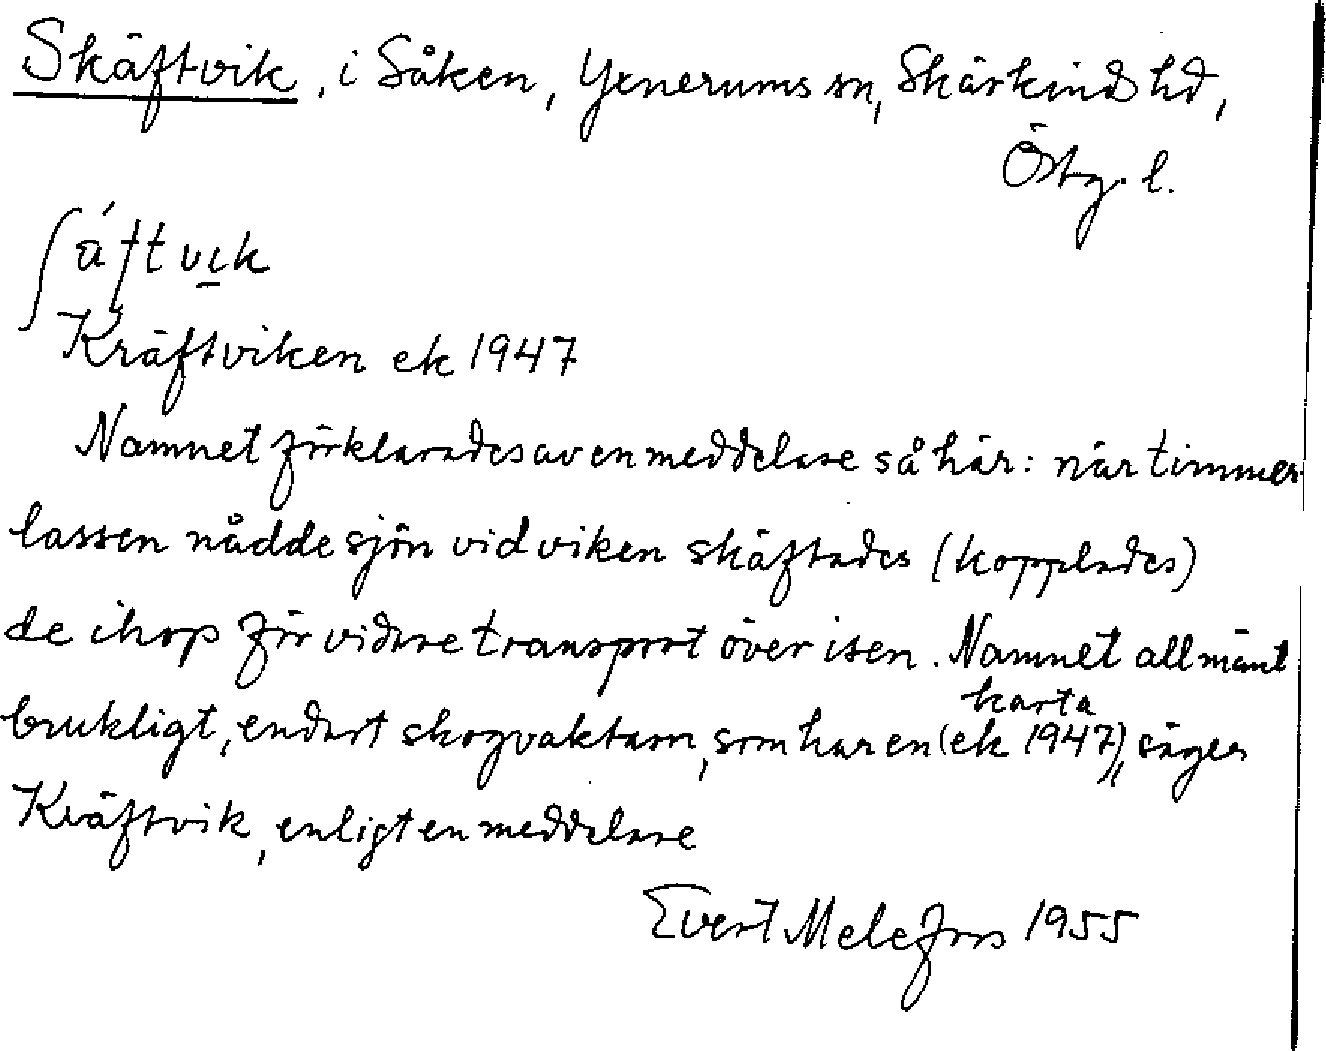 Skäftvik, i Såken, Yxnerums sn, Skärkinds hd,
Östg. l.
ʃä́ftvi̠k
Kräftviken ek 1947
Namnet förklarades av en meddelare så här: när timmer
lassen nådde sjön vid viken skäftades (kopplades)
de ihop för vidare transport över isen. Namnet allmänt
karta
brukligt, endast skogvaktarn, som har en (ek 1947), säger
Kräftvik, enligt en meddelare
Evert Melefors 1955